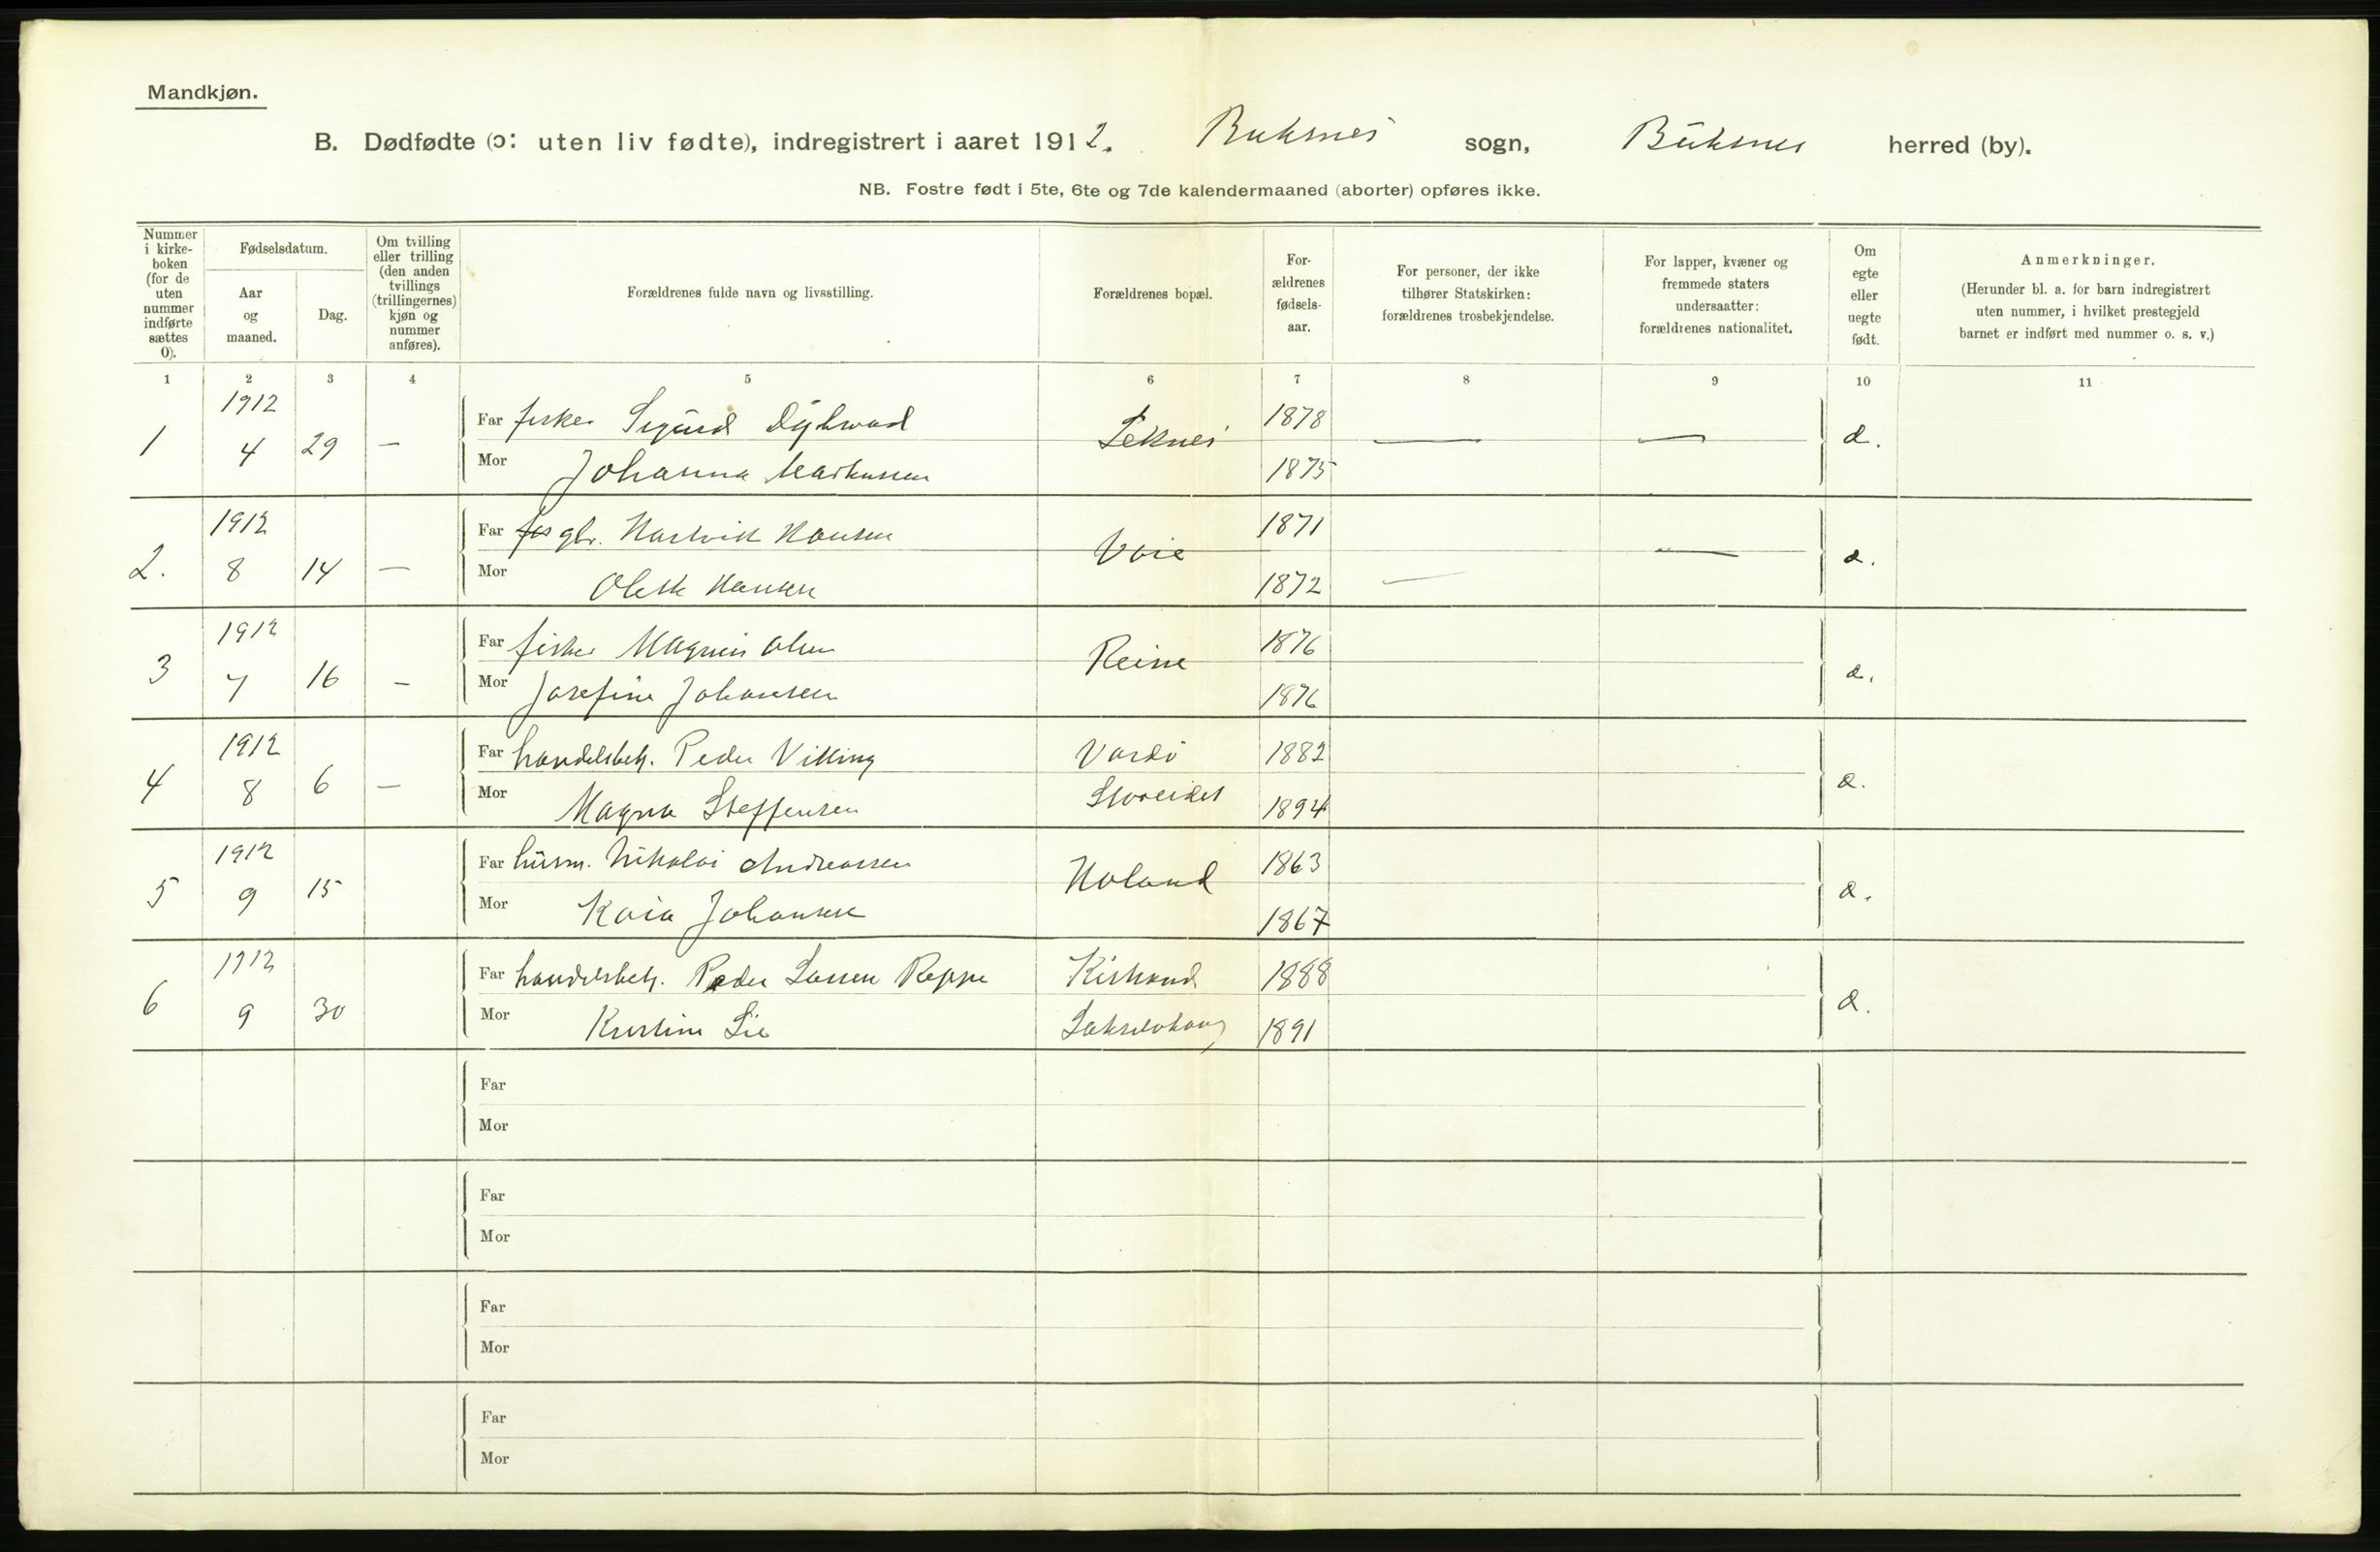 Mandkjøn.
B. Dødfødte (ɔ: uten liv fødte), indregistrert i aaret 1912. Buksnes sogn, Buksnes herred (by).
NB. Fostre født i 5te, 6te og 7de kalendermaaned (aborter) opføres ikke.
Nummer i kirke-boken (for de uten nummer indførte sættes 0).
Fødselsdatum.
Aar og maaned.
Dag.
Om tvilling eller trilling (den anden tvillings (trillingernes) kjøn og nummer anføres).
Forældrenes fulde navn og livsstilling.
Forældrenes bopæl.
For-ældrenes fødsels-aar.
For personer, der ikke tilhører Statskirken: forældrenes trosbekjendelse.
For lapper, kvæner og fremmede staters undersaatter: forældrenes nationalitet.
Om egte eller uegte født.
Anmerkninger.
(Herunder bl. a. for barn indregistrert uten nummer, i hvilket prestegjeld barnet er indført med nummer o. s. v.)
1 2 3 4 5 6 7 8 9 10 11
1 1912 4 29 — Far fisker Sigurd Leknes 1878 — — æ.
Mor Johanna Markussen 1875
2. 1912 8 14 — Far gbr. Hartvik Hansen 1871 — — æ.
Mor Hansen 1872
3 1912 7 16 — Far fisker Magnus Olsen Reine 1876 æ.
Mor Josefine Johansen 1876
4 1912 8 6 — Far handelsbetj. Peder Viking Vardø 1882 æ.
Mor Magna Steffensen Storeidet 1894
5 1912 9 15 Far husm. Nikolai Andreassen Holand 1863 æ.
Mor Kaia Johansen 1867
6 1912 9 30 Far handelsbetj. Peder Larsen Reppe 1888 æ.
Mor Kristine Lie 1891
Far
Mor
Far
Mor
Far
Mor
Far
Mor